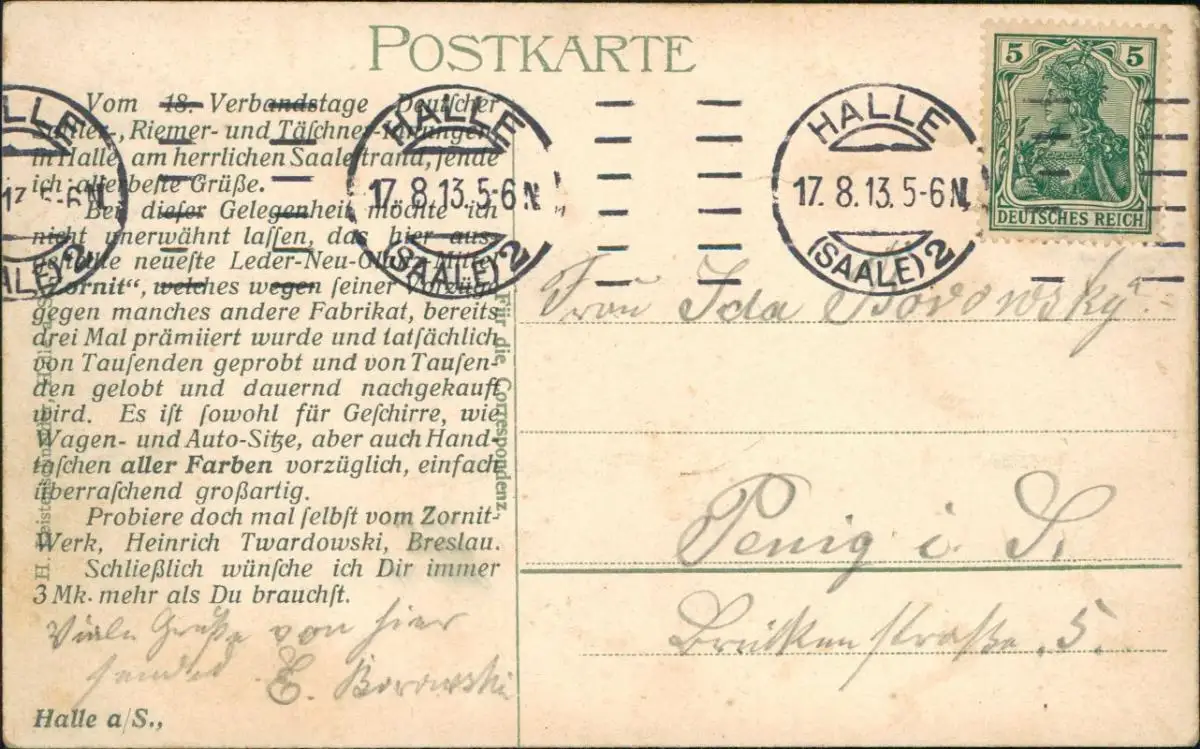 POSTKARTE
Vom 18. Verbandstage Deutſcher
Sattler-, Riemer- und Täſchner-Innungen
in Halle, am herrlichen Saaleſtrand, ſende
ich allerbeſte Grüße.
Bei dieſer Gelegenheit möchte ich
nicht unerwähnt laſſen, das hier aus-
neueſte Leder-Neu-
Zornit“, welches wegen ſeiner Vorzüge
gegen manches andere Fabrikat, bereits
drei Mal prämiiert wurde und tatſächlich
von Tauſenden geprobt und von Tauſen-
den gelobt und dauernd nachgekauft
wird. Es iſt ſowohl für Geſchirre, wie
Wagen- und Auto-Sitze, aber auch Hand-
taſchen aller Farben vorzüglich, einfach
überraſchend großartig.
Probiere doch mal ſelbſt vom Zornit-
Werk, Heinrich Twardowski, Breslau.
Schließlich wünſche ich Dir immer
3 Mk. mehr als Du brauchſt.
Viele Grüße von hier
sendet E. Borowski
Halle a/S.,
Für die Correspondenz.
HALLE
17. 5-6 N.
(SAALE) 2
HALLE
17. 8. 13. 5-6 N.
(SAALE) 2
HALLE
17. 8. 13. 5-6 N.
(SAALE) 2
5 5
DEUTSCHES REICH
Frau Ida Borowsky
Penig i. S.
Brückenstraße 5.